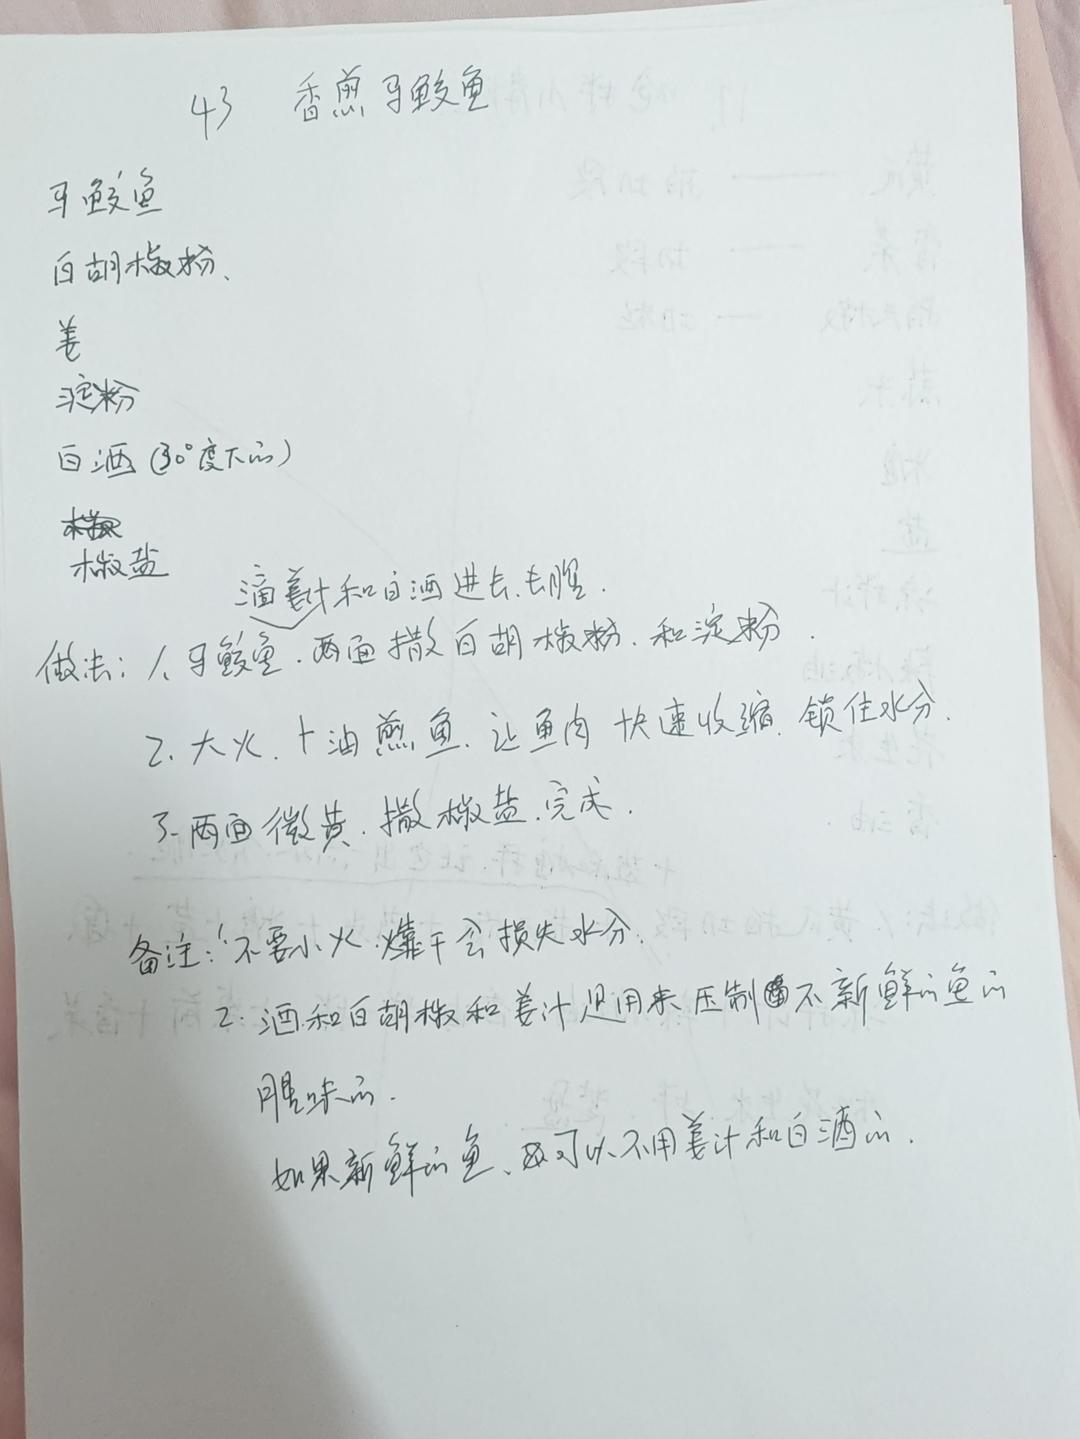 43 香煎马鲛鱼
马鲛鱼
白胡椒粉、
姜
淀粉
白酒(30°度下的)
椒盐
滴姜汁和白酒进去.去腥.
做法: 1、马鲛鱼.两面撒白胡椒粉.和淀粉.
2. 大火.十油煎鱼.让鱼肉 快速收缩.锁住水分.
3. 两面微黄.撒椒盐.完成.
备注: 1 不要小火.烤干会损失水分.
2. 酒和白胡椒和姜汁是用来压制不新鲜的鱼的
腥味的.
如果新鲜的鱼、可以不用姜汁和白酒的.